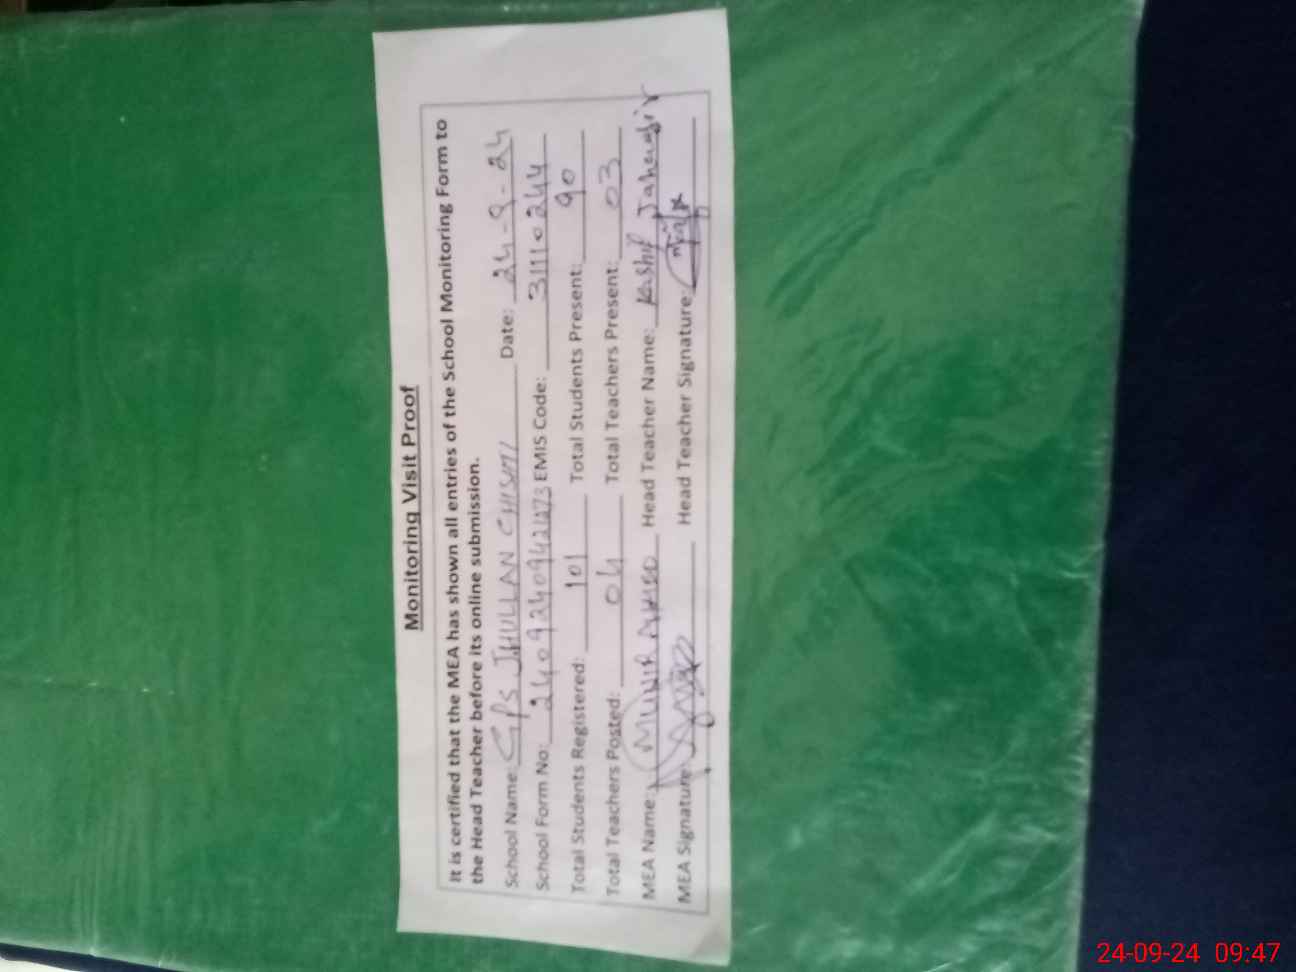 Monitoring Visit Proof
It is certified that the MEA has shown all entries of the School Monitoring Form to
the Head Teacher before its online submission.
School Name: GPS JHULLAN CHISHTI Date: 24-9-24
School Form No: EMIS Code: 31110244
Total Students Registered: 101 Total Students Present: 90
Total Teachers Posted: 04 Total Teachers Present: 03
MEA Name: MUNIR AHMED Head Teacher Name: Kashif Jahangir
MEA Signature: Head Teacher Signature:
24-09-24 09:47